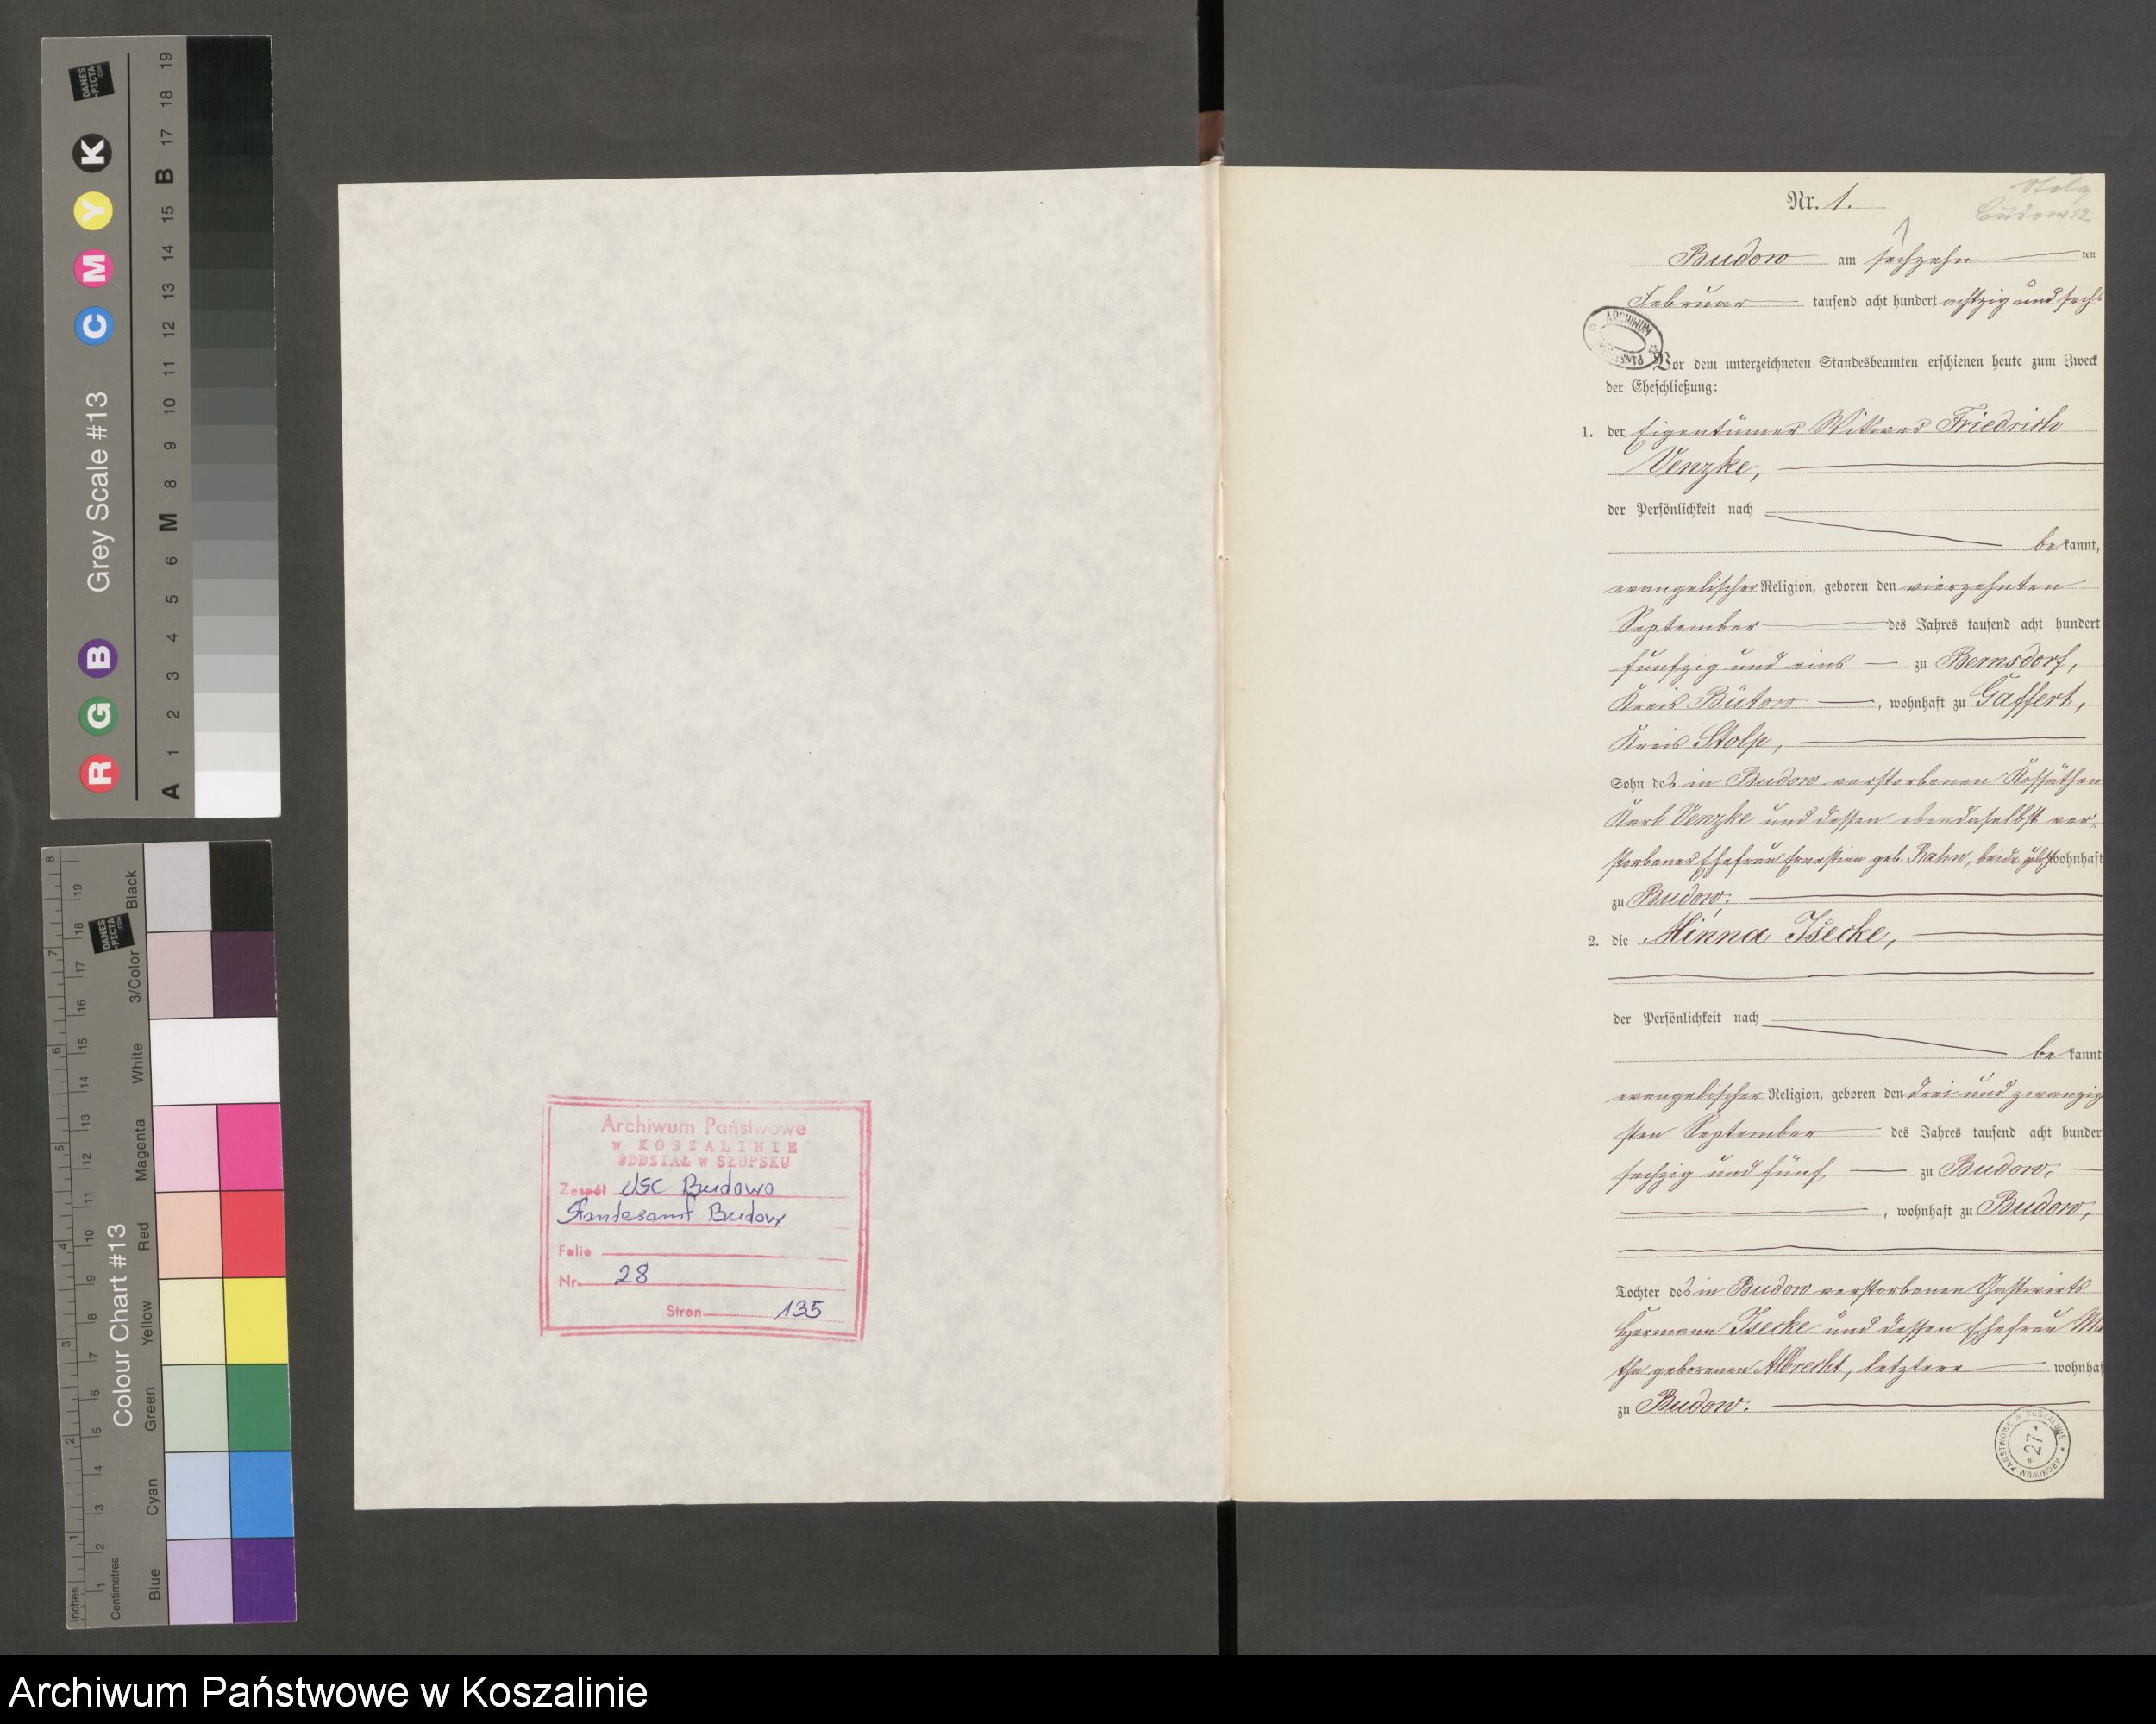 DANES
-PICTA
.COM
Grey Scale #13
R G B C M Y K
A 1 2 3 4 5 6 M 8 9 10 11 12 13 14 15 B 17 18 19
Colour Chart #13
DANES
-PICTA
.COM
Inches
1 2 3 4 5 6 7 8
Centimetres
1 2 3 4 5 6 7 8 9 10 11 12 13 14 15 16 17 18 19
Blue Cyan Green Yellow Red Magenta White 3/Color Black
Archiwum Państwowe
w KOSZALINIE
ODDZIAŁ w SŁUPSKU
Zespół USC Budowo
Standesamt Budow
Folio
Nr. 28
Stron 135
Nr. 1.
Budow am sechzehn ten
Februar tausend acht hundert achtzig und sechs
ARCHIWUM
Vor dem unterzeichneten Standesbeamten erschienen heute zum Zweck
der Eheschließung:
1. der Eigentümer Witwer Friedrich
Venzke,
der Persönlichkeit nach
be kannt,
evangelischer Religion, geboren den vierzehnten
September des Jahres tausend acht hundert
fünfzig und eins zu Bernsdorf,
Kreis Bütow, wohnhaft zu Gaffert,
Kreis Stolp,
Sohn des in Budow verstorbenen Kossäthen
Karl Venzke und dessen ebendaselbst ver-
storbener Ehefrau Ernestine geb. Rahn, beide wohnhaft
zu Budow.
2. die Minna Isecke,
der Persönlichkeit nach
be kannt
evangelischer Religion, geboren den drei und zwanzig
sten September des Jahres tausend acht hunder
sechzig und fünf zu Budow,
, wohnhaft zu Budow,
Tochter des in Budow verstorbenen Gastwirts
Hermann Isecke und dessen Ehefrau Ma
tha geborenen Albrecht, letztere wohnhaf
zu Budow.
ARCHIWUM PAŃSTWOWE W KOSZALINIE
27
Archiwum Państwowe w Koszalinie